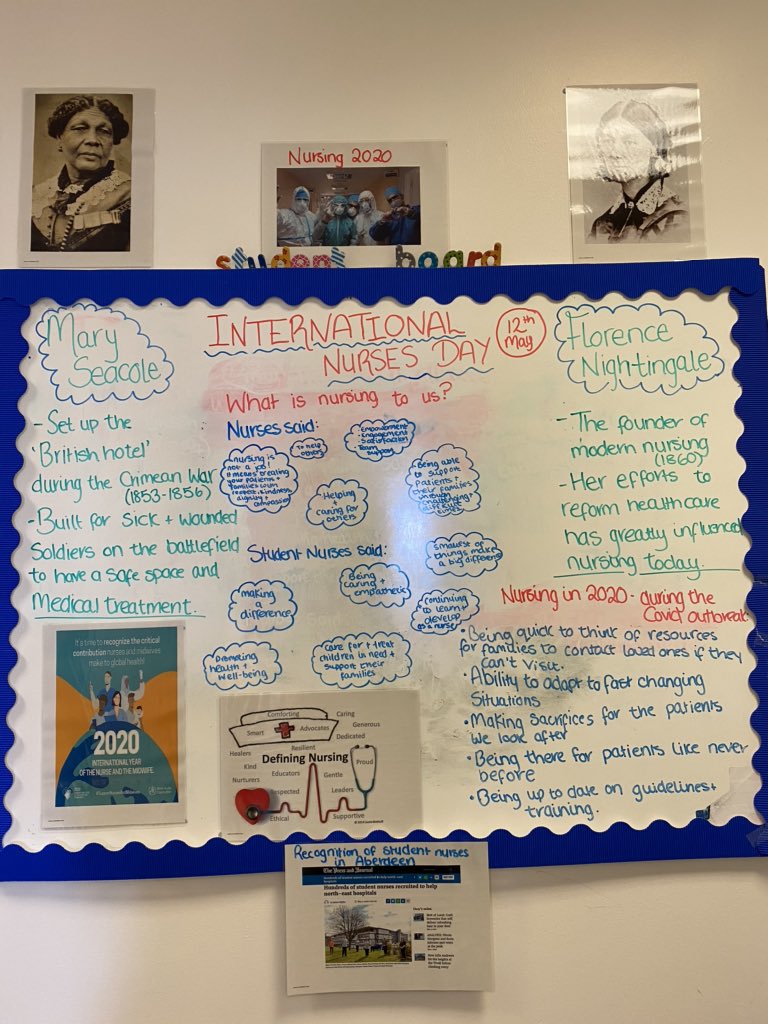 Nursing 2020
student board
Mary
Seacole
- Set up the
'British hotel'
during the Crimean War
(1853-1856)
- Built for Sick + Wounded
Soldiers on the battlefield
to have a safe space and
Medical treatment.
INTERNATIONAL
NURSES DAY
12th
May
What is nursing to us?
Nurses said:
nursing is
not a job
it means treating
your patients +
families with
respect, kindness,
dignity +
compassion
To help
others
Empowerment
Engagement
Satisfaction
Team
Support
Helping +
caring for
others
Being able
to support
patients +
their families
through
challenging +
difficult
times
Student Nurses said:
Smallest of
things make
a big difference
making
a
difference
Being
caring +
empathetic
continuing
to learn +
develop
as a nurse
Promoting
health +
well-being
care for + treat
children in need +
support their
families
Florence
Nightingale
- The founder of
modern nursing
(1860)
- Her efforts to
reform healthcare
has greatly influenced
nursing today.
Nursing in 2020 - during the
Covid outbreak
• Being quick to think of resources
for families to contact loved ones if they
can't visit.
• Ability to adapt to fast changing
Situations
• Making Sacrifices for the patients
we look after
• Being there for patients like never
before
• Being up to date on guidelines +
training.
It's time to recognize the critical
contribution nurses and midwives
make to global health!
2020
INTERNATIONAL YEAR
OF THE NURSE AND THE MIDWIFE
Comforting
Caring
Smart
Advocates
Generous
Dedicated
Healers
Resilient
Kind
Defining Nursing
Proud
Nurturers
Educators
Gentle
Respected
Leaders
Ethical
Supportive
Recognition of student nurses
in Aberdeen
The Press and Journal
Hundreds of student nurses recruited to help
north-east hospitals